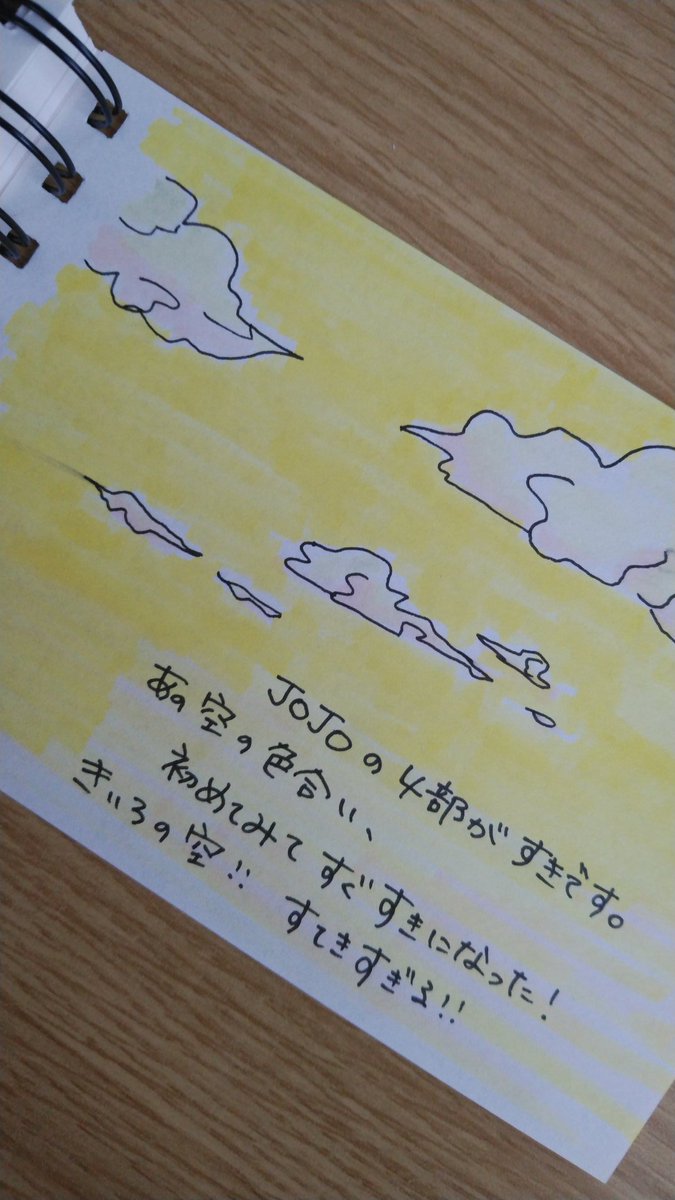 JOJOの4部がすきです。
あの空の色合い、
初めてみてすぐすきになった!
きいろの空!! すてきすぎる!!